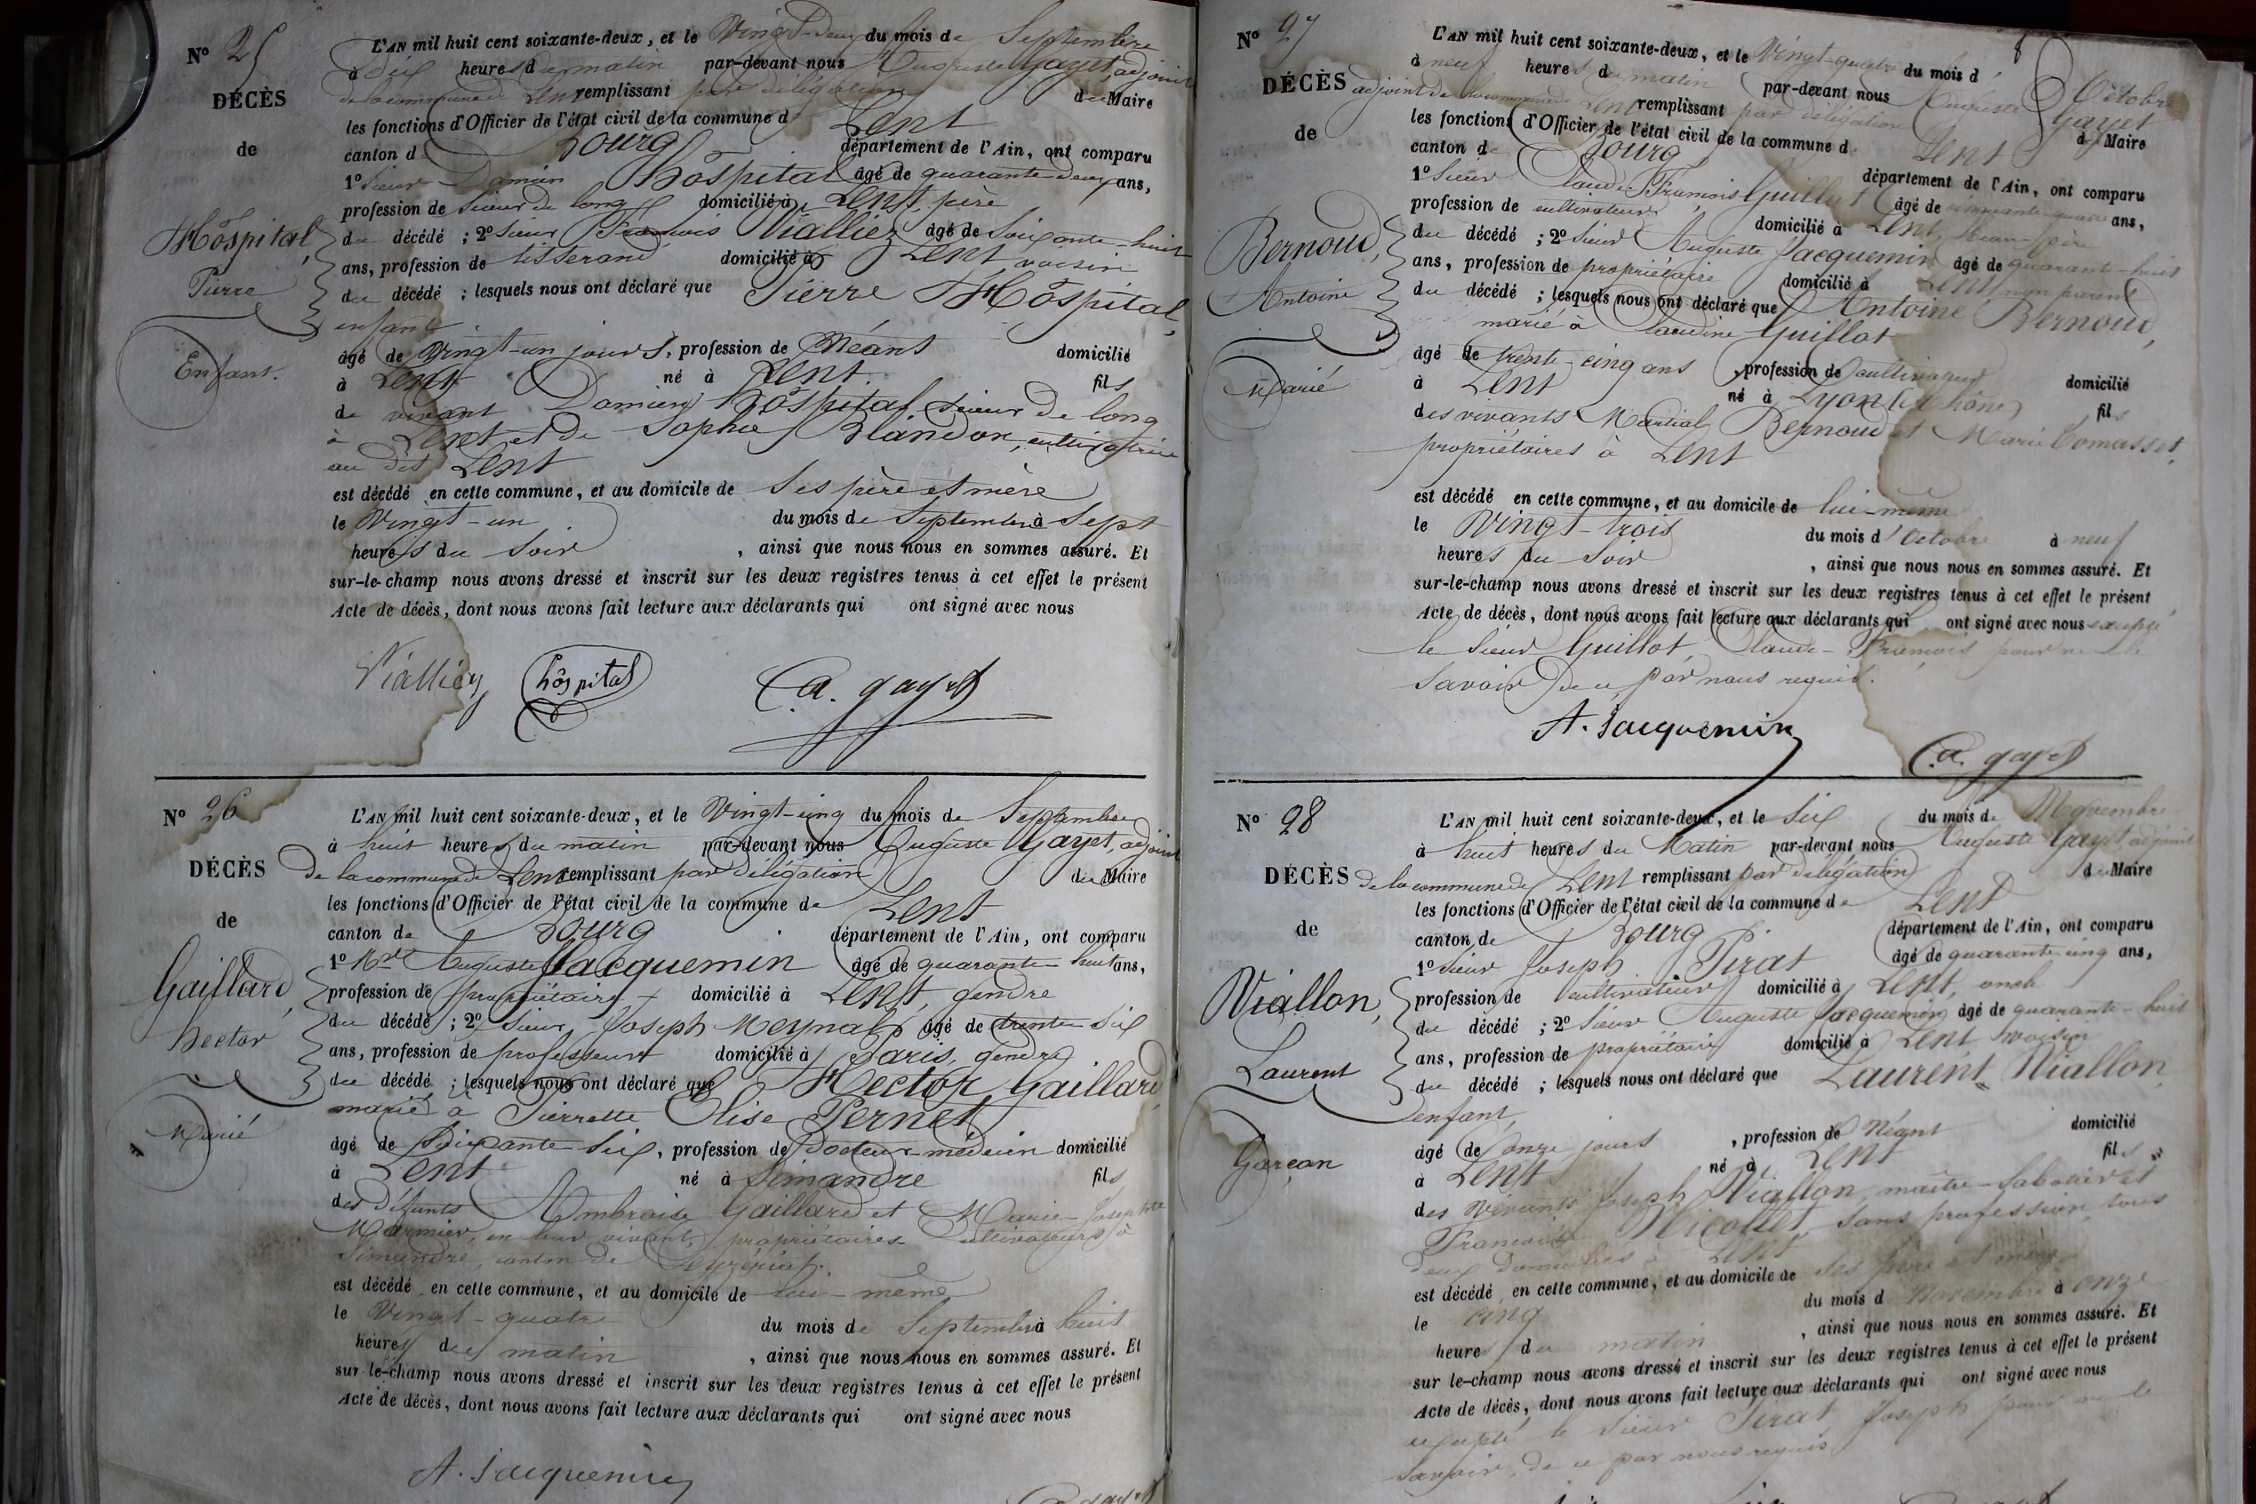 N° 25
DÉCÈS
de
Hôspital,
Pierre
Enfant.
L'AN mil huit cent soixante-deux, et le Vingt-deux du mois de Septembre
à dix heures du matin par-devant nous Auguste Gayet, adjoint
de la commune de Lent remplissant par délégation du Maire
les fonctions d'Officier de l'état civil de la commune de Lent
canton de Bourg département de l'Ain, ont comparu
1° Sieur Damien Hôspital âgé de quarante-deux ans,
profession de Scieur de long domicilié à Lent, père
du décédé ; 2° Sieur François Viallier âgé de Soixante-huit
ans, profession de tisserand domicilié à Lent, voisin
du décédé ; lesquels nous ont déclaré que Pierre Hôspital,
enfant
âgé de Vingt-un jours, profession de Néant domicilié
à Lent né à Lent fils
de vivant Damien Hôspital, scieur de long
à Lent et de Sophie Blandon, cultivatrice
au dit Lent
est décédé en cette commune, et au domicile de Ses père et mère
le Vingt-un du mois de Septembre à Sept
heures du Soir, ainsi que nous nous en sommes assuré. Et
sur-le-champ nous avons dressé et inscrit sur les deux registres tenus à cet effet le présent
Acte de décès, dont nous avons fait lecture aux déclarants qui ont signé avec nous
Viallier hôspital a. gayet
N° 26
DÉCÈS
de
Gaillard,
Hector
Marié
L'AN mil huit cent soixante-deux, et le Vingt-cinq du mois de Septembre
à huit heures du matin par-devant nous Auguste Gayet, adjoint
de la commune de Lent remplissant par délégation du Maire
les fonctions d'Officier de l'état civil de la commune de Lent
canton de Bourg département de l'Ain, ont comparu
1° Auguste Jacquemin âgé de quarante-huit ans,
profession de propriétaire domicilié à Lent, gendre
du décédé ; 2° Sieur Joseph Meynal âgé de trente six
ans, profession de professeur domicilié à Paris, gendre
du décédé ; lesquels nous ont déclaré que Hector Gaillard
marié à Pierrette Elise Pernet
âgé de Soixante-six, profession de Docteur-médecin domicilié
à Lent né à Simandre fils
des défunts Ambroise Gaillard et Marie Josephte
Marmier, en leur vivant, propriétaires cultivateurs à
Simandre, canton de Ceyzériat.
est décédé en cette commune, et au domicile de lui-même
le Vingt-quatre du mois de Septembre à huit
heures du matin, ainsi que nous nous en sommes assuré. Et
sur-le-champ nous avons dressé et inscrit sur les deux registres tenus à cet effet le présent
Acte de décès, dont nous avons fait lecture aux déclarants qui ont signé avec nous
A. Jacquemin
N° 27
DÉCÈS
de
Bernoud,
Antoine
Marié
L'AN mil huit cent soixante-deux, et le Vingt-quatre du mois d'Octobre
à neuf heures du matin par-devant nous Auguste Gayet
adjoint de la commune de Lent remplissant par délégation du Maire
les fonctions d'Officier de l'état civil de la commune de Lent
canton de Bourg département de l'Ain, ont comparu
1° Sieur Claude François Guillot âgé de cinquante quatre ans,
profession de cultivateur domicilié à Lent, beau-père
du décédé ; 2° Sieur Auguste Jacquemin âgé de quarante-huit
ans, profession de propriétaire domicilié à Lent, non parent
du décédé ; lesquels nous ont déclaré que Antoine Bernoud,
marié à Claudine Guillot
âgé de trente-cinq ans, profession de Cultivateur domicilié
à Lent né à Lyon (Rhône) fils
des vivants Martial Bernoud et Marie Comasset,
propriétaires à Lent
est décédé en cette commune, et au domicile de lui-même
le Vingt-trois du mois d'Octobre à neuf
heures du soir, ainsi que nous nous en sommes assuré. Et
sur-le-champ nous avons dressé et inscrit sur les deux registres tenus à cet effet le présent
Acte de décès, dont nous avons fait lecture aux déclarants qui ont signé avec nous excepté
le sieur Guillot Claude-François pour ne le
savoir de ce par nous requis.
A. Jacquemin
a. gayet
N° 28
DÉCÈS
de
Viallon,
Laurent
Garçon
L'AN mil huit cent soixante-deux, et le Six du mois de Novembre
à huit heures du Matin par-devant nous Auguste Gayet, adjoint
de la commune de Lent remplissant par délégation du Maire
les fonctions d'Officier de l'état civil de la commune de Lent
canton de Bourg département de l'Ain, ont comparu
1° Sieur Joseph Pirat âgé de quarante cinq ans,
profession de cultivateur domicilié à Lent, oncle
du décédé ; 2° Sieur Auguste Jacquemin âgé de quarante-huit
ans, profession de propriétaire domicilié à Lent voisin
du décédé ; lesquels nous ont déclaré que Laurent Viallon
enfant,
âgé de onze jours, profession de Néant domicilié
à Lent né à Lent fils
des Vivants Joseph Viallon, maître-sabotier et
Françoise Nicollet, sans profession, tous
deux domiciliés à Lent
est décédé en cette commune, et au domicile de Ses père et mère
le cinq du mois de Novembre à onze
heures du matin, ainsi que nous nous en sommes assuré. Et
sur-le-champ nous avons dressé et inscrit sur les deux registres tenus à cet effet le présent
Acte de décès, dont nous avons fait lecture aux déclarants qui ont signé avec nous
excepté le Sieur Pirat Joseph pour ne le
savoir, de ce par nous requis